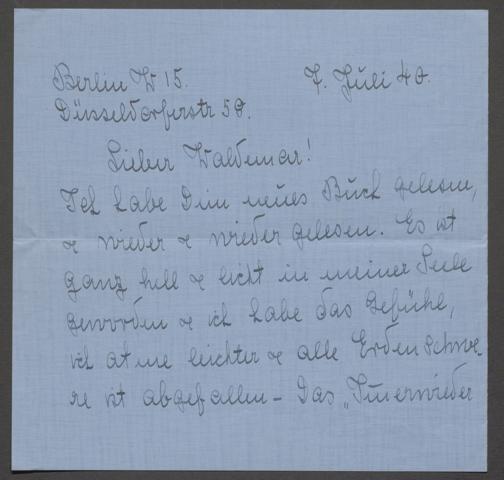 Berlin W 15. 7. Juli 40.
Düsseldorferstr 50.
Lieber Waldemar!
Ich habe Dein neues Buch gelesen,
& wieder & wieder gelesen. Es ist
ganz hell & licht in meiner Seele
geworden & ich habe das Gefühl,
ich atme leichter & alle Erdenschwe-
re ist abgefallen – Das „Immerwieder